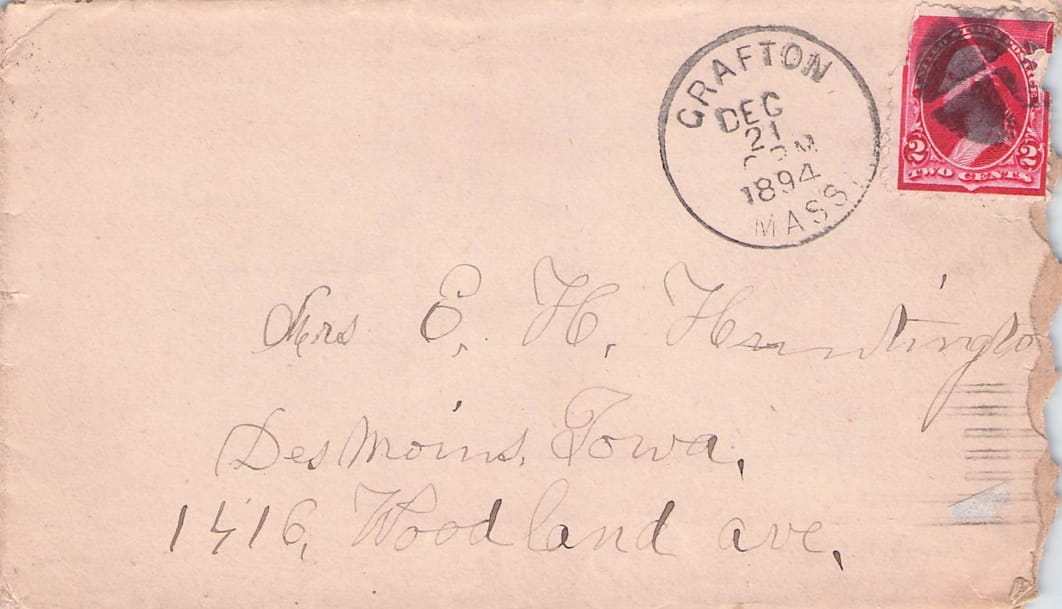 GRAFTON
DEC
21
PM
1894
MASS.
2 2
TWO CENTS
Mrs E. H. Huntingto
Des Moins, Iowa.
1416, Woodland ave.